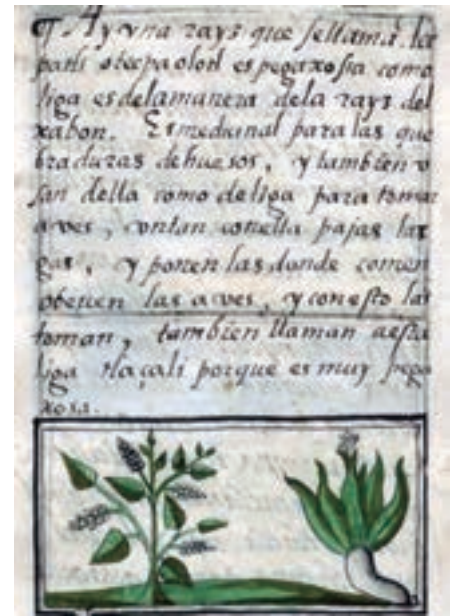 ¶ Ay vna rays que sellama. tec
patli otecpaolotl espegaxosa como
liga esdelamanera dela rays del
xabon. Esmedicinal para las que
braduras dehuesos, y tambien v
san della como deliga para tomar
aves, vntan conella pajas lar
gas, y ponen las donde comen
obeuen las aves, y conesto las
toman, tambien llaman aesta
liga tlaçali porque es muy pega
xosa.